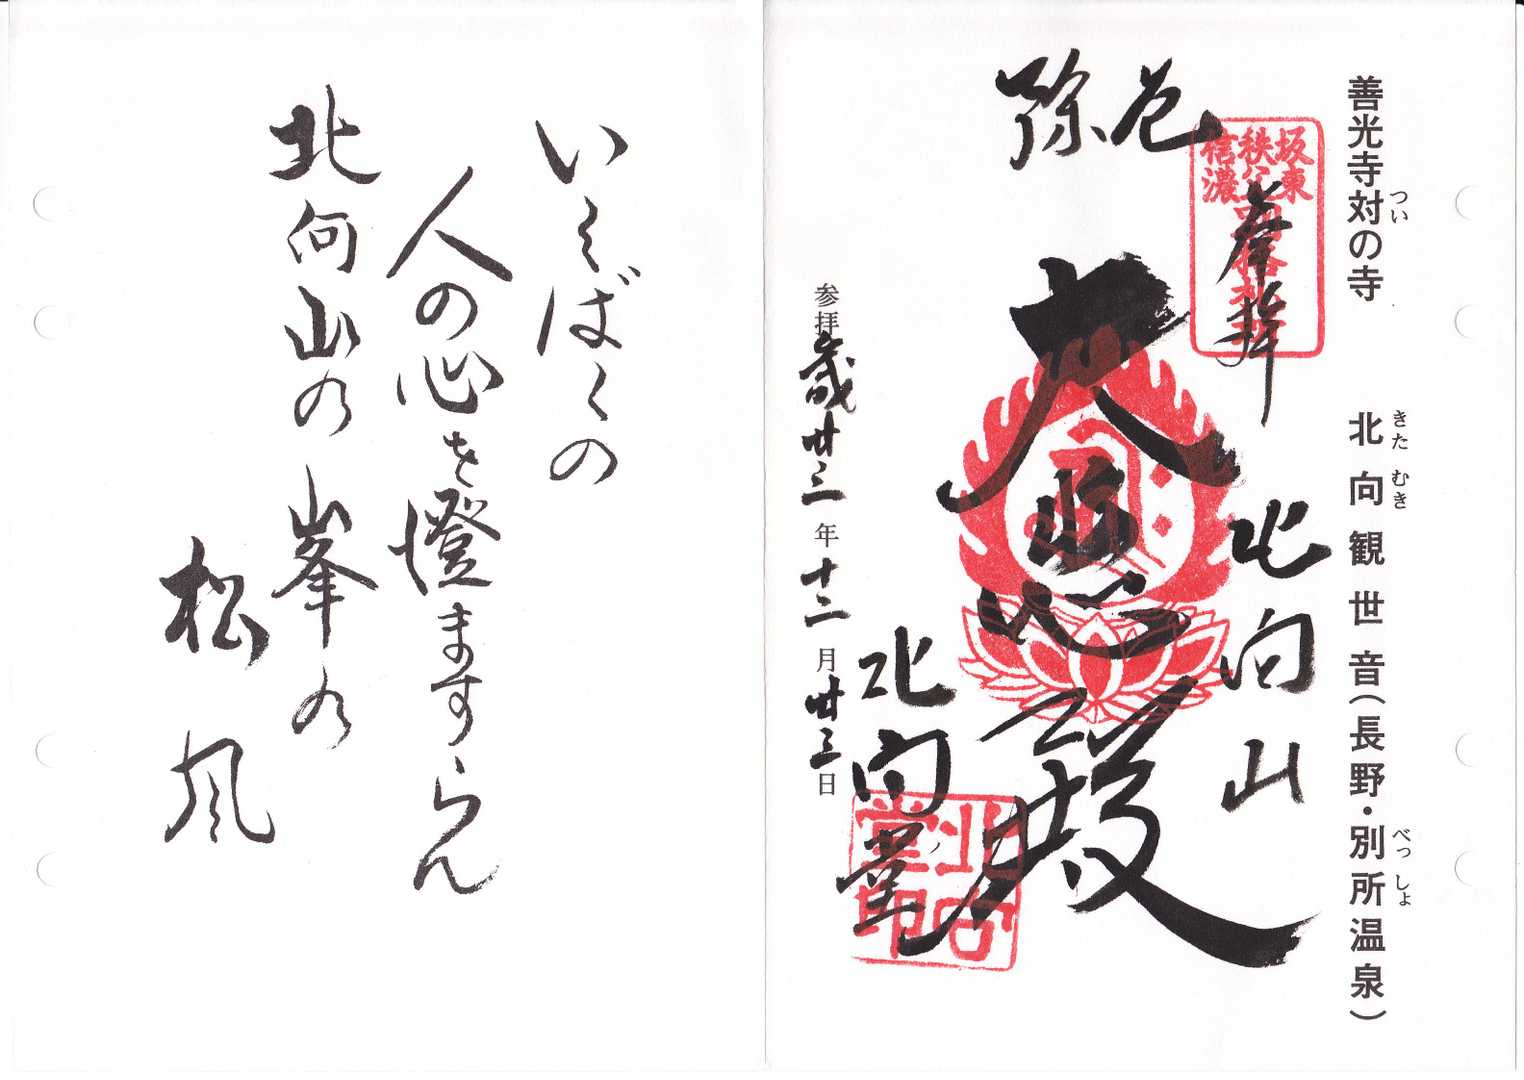 善光寺対の寺　北向観世音(長野・別所温泉)
つい　きた むき　べっ しょ
坂東
秩父
信濃
奉拝
北向山
厄除
大悲殿
北向堂
北向堂印
参拝平成廿三年十二月廿三日
いくばくの
人の心を澄ますらん
北向山の峯の
松風